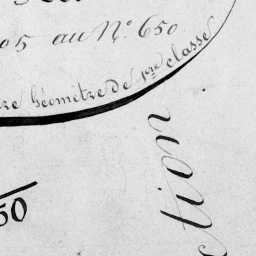 05 au N.° 650
re Géomètre de 1re classe
50
ction